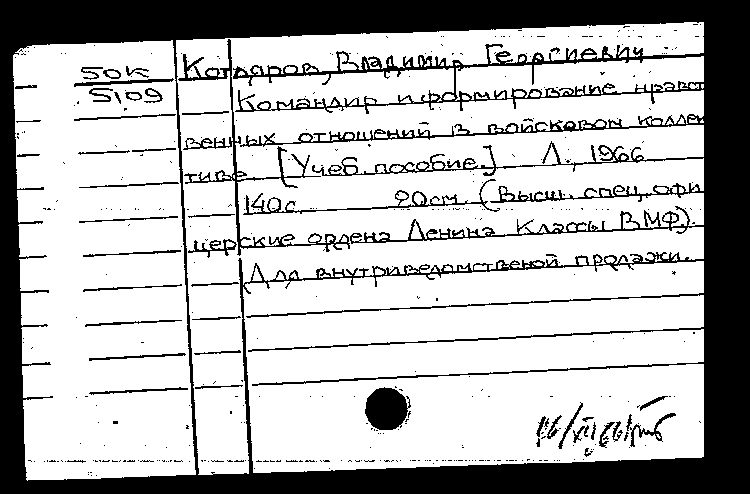 50К Котляров, Владимир Георгиевич
5109 Командир и формирование нравст
венных отношений в войсковом коллек
тиве. [Учеб. пособие.] Л., 1966
140с. 20см. (Высш. спец. офи
церские ордена Ленина Классы ВМФ).
Для внутриведомственой продажи.
16/XII 66